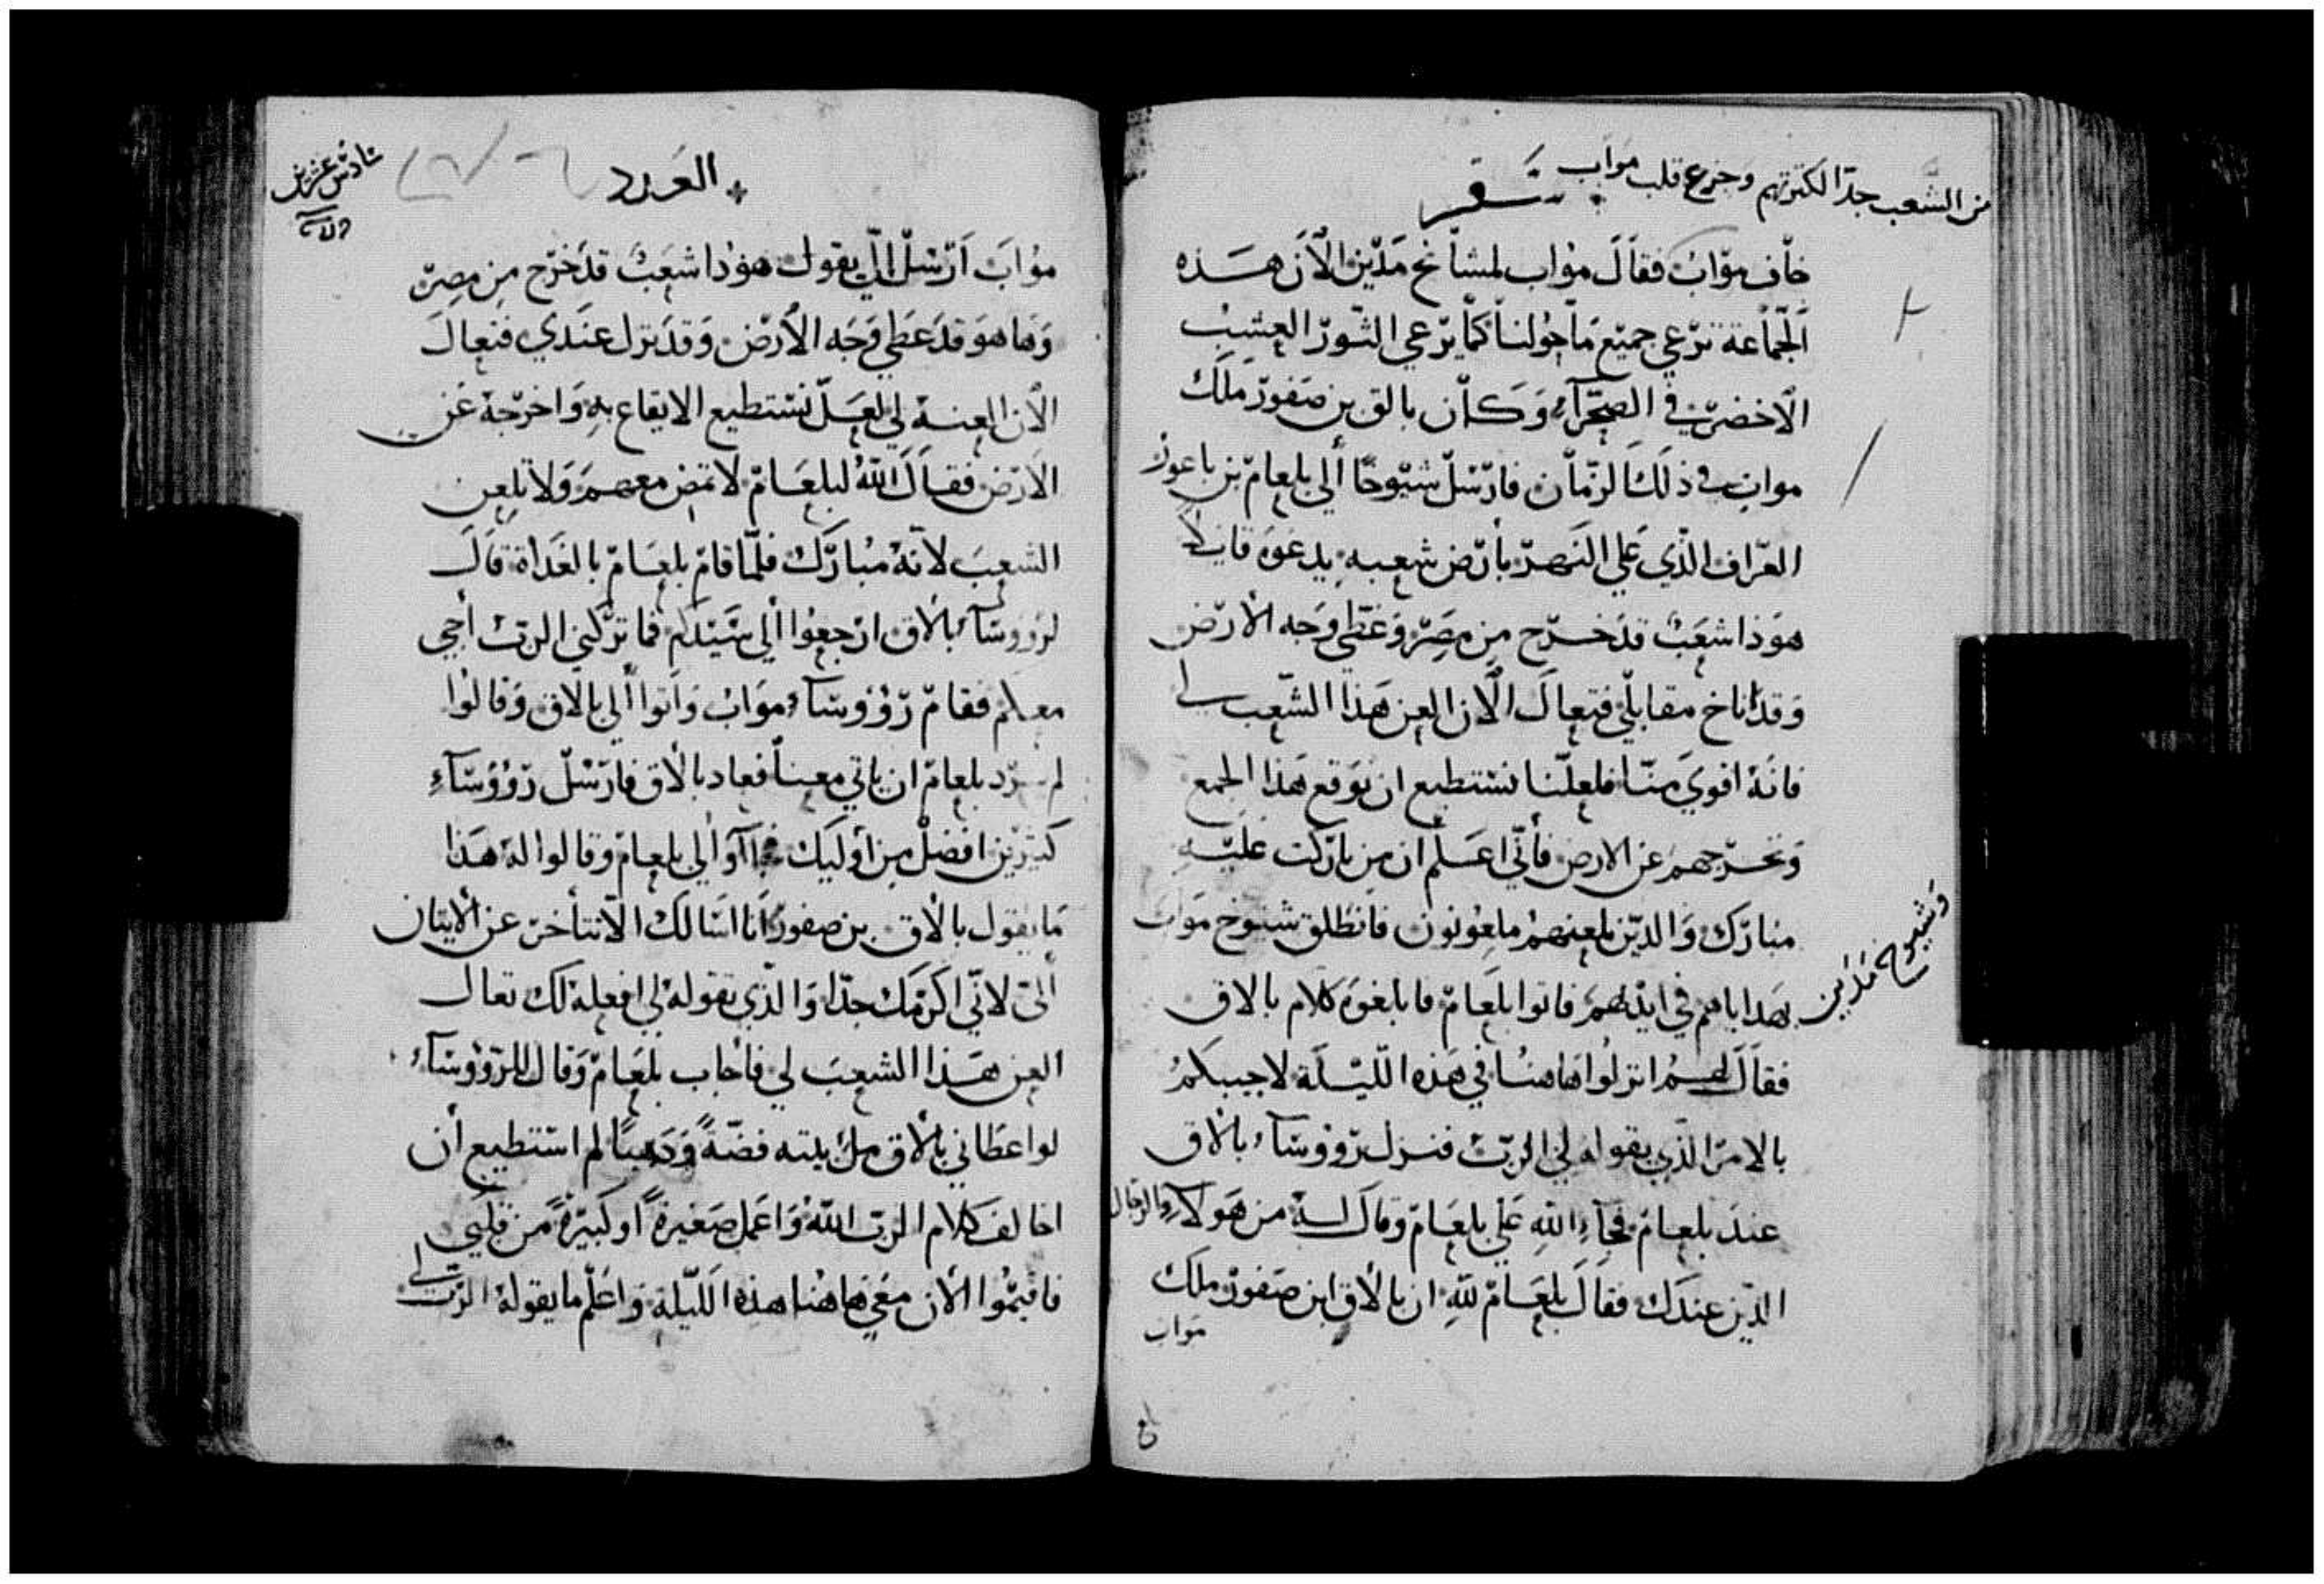 من الشعب جدا لكثرتهم وجزع قلب مواب
سفر
خاف مواب فقال مواب لمشائخ مدين الآن هذه
الجماعة ترعي جميع ما حولنا كما يرعي الثور العشب
الاخضر في الصحرآء وكان بالق بن صفور ملك
مواب في ذلك الزمان فارسل شيوخا ألي بلعام بن باعور
العراف الذي علي النهر بأرض شعبه يدعوه قايلا
هوذا شعب قد خرج من مصر وغطي وجه الأرض
وقد اناخ مقابلي فتعال الآن العن هذا الشعب لي
فانه اقوي منا فلعلنا نستطيع ان نوقع هذا الجمع
ونخرجهم عن الارض فأني اعلم ان من باركت عليه
مبارك والذين تلعنهم ملعونون فانطلق شيوخ مواب
وشيوخ مدين
بهداياهم في ايديهم فاتوا بلعام فابلغوه كلام بالاق
فقال لهم انزلوا هاهنا في هذه الليلة لاجيبكم
بالامر الذي يقوله لي الرب فنزل رؤوسآء بالاق
عند بلعام فجآء الله علي بلعام وقال له من هولاء الرجال
الذين عندك فقال بلعام لله ان بالاق ابن صفور ملك
مواب
العدد
سادس عشرين
مواب ارسل الي يقول هوذا شعب قد خرج من مصر
وها هو قد غطي وجه الأرض وقد نزل عندي فتعال
الآن العنه لي لعل نستطيع الايقاع به واخرجه عن
الارض فقال الله لبلعام لا تمض معهم ولا تلعن
الشعب لأنه مبارك فلما قام بلعام بالغداة قال
لرؤوسآء بالاق ارجعوا ألي سيدكم فما تركني الرب أجي
معكم فقام رؤوسآء مواب واتوا ألي بالاق وقالوا
لم يرد بلعام ان ياتي معنا فعاد بالاق فارسل رؤوسآء
كثيرين افضل من أوليك فجاآوا الي بلعام وقالوا له هذا
ما يقول بالاق بن صفور انا اسالك الا تتأخر عن الأتيان
ألي لاني اكرمك جدا والذي تقوله لي افعله لك تعال
العن هذا الشعب لي فاجاب بلعام وقال للرؤوسآء
لو اعطاني بالاق ملء بيته فضة وذهبا لم استطيع أن
اخالف كلام الرب الله واعمل صغيرة او كبيرة من قلبي
فاقيموا الآن معي هاهنا هذه الليلة واعلم ما يقوله الرب لي